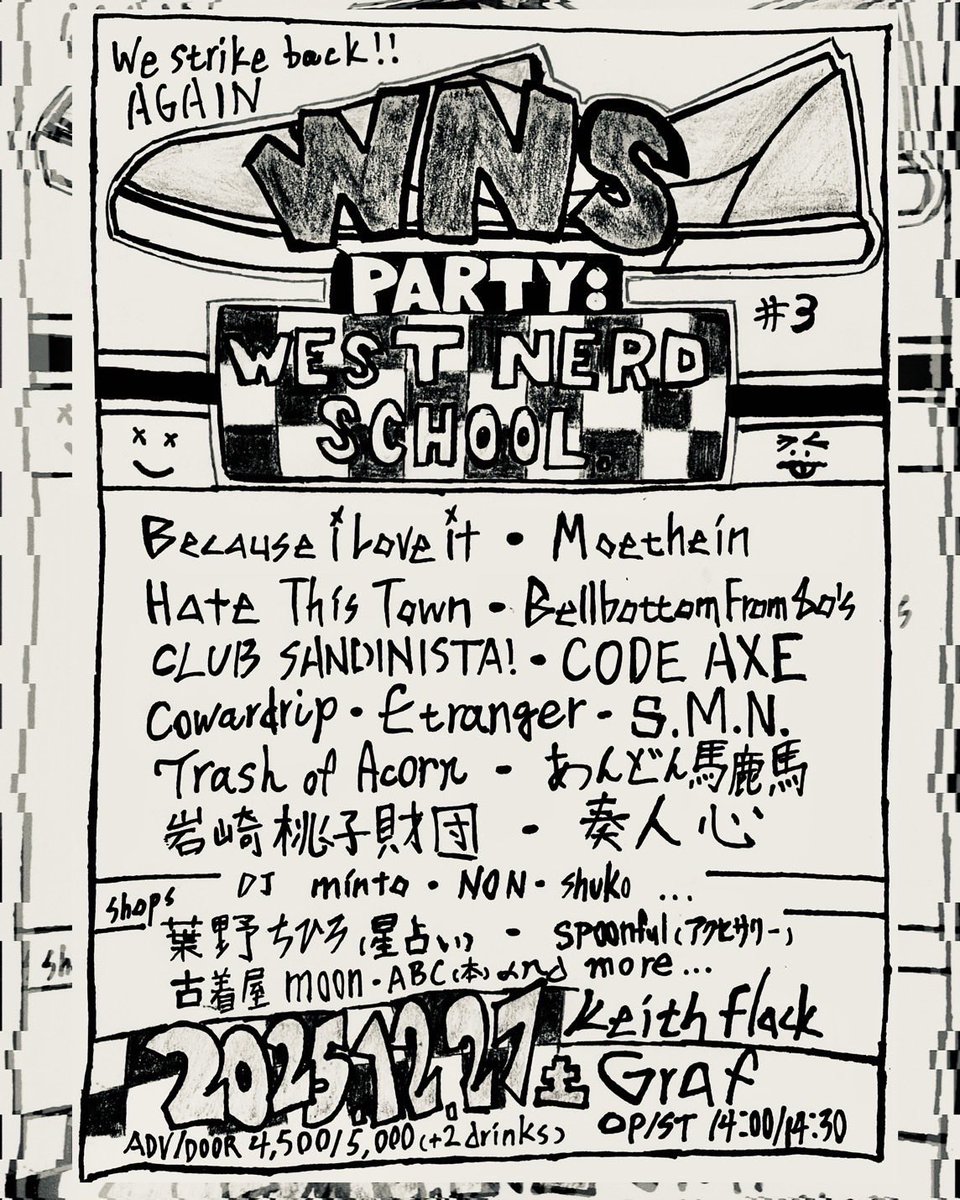 We strike back!!
AGAIN
WNS
PARTY:
#3
WEST NERD
SCHOOL.
Because i Love it • Moethein
Hate This Town • Bellbottom From 80's
CLUB SANDINISTA! • CODE AXE
Cowardrip • Etranger • S.M.N.
Trash of Acorn • あんどん馬鹿馬
岩崎桃子財団 • 奏人心
DJ minto • NON • shuko ...
shops
葉野ちひろ(星占い) • spoonful(アクセサリー)
古着屋 moon • ABC(本) and more...
2025.12.27土
Keith Flack
Graf
ADV/DOOR 4,500/5,000(+2drinks)
OP/ST 14:00/14:30